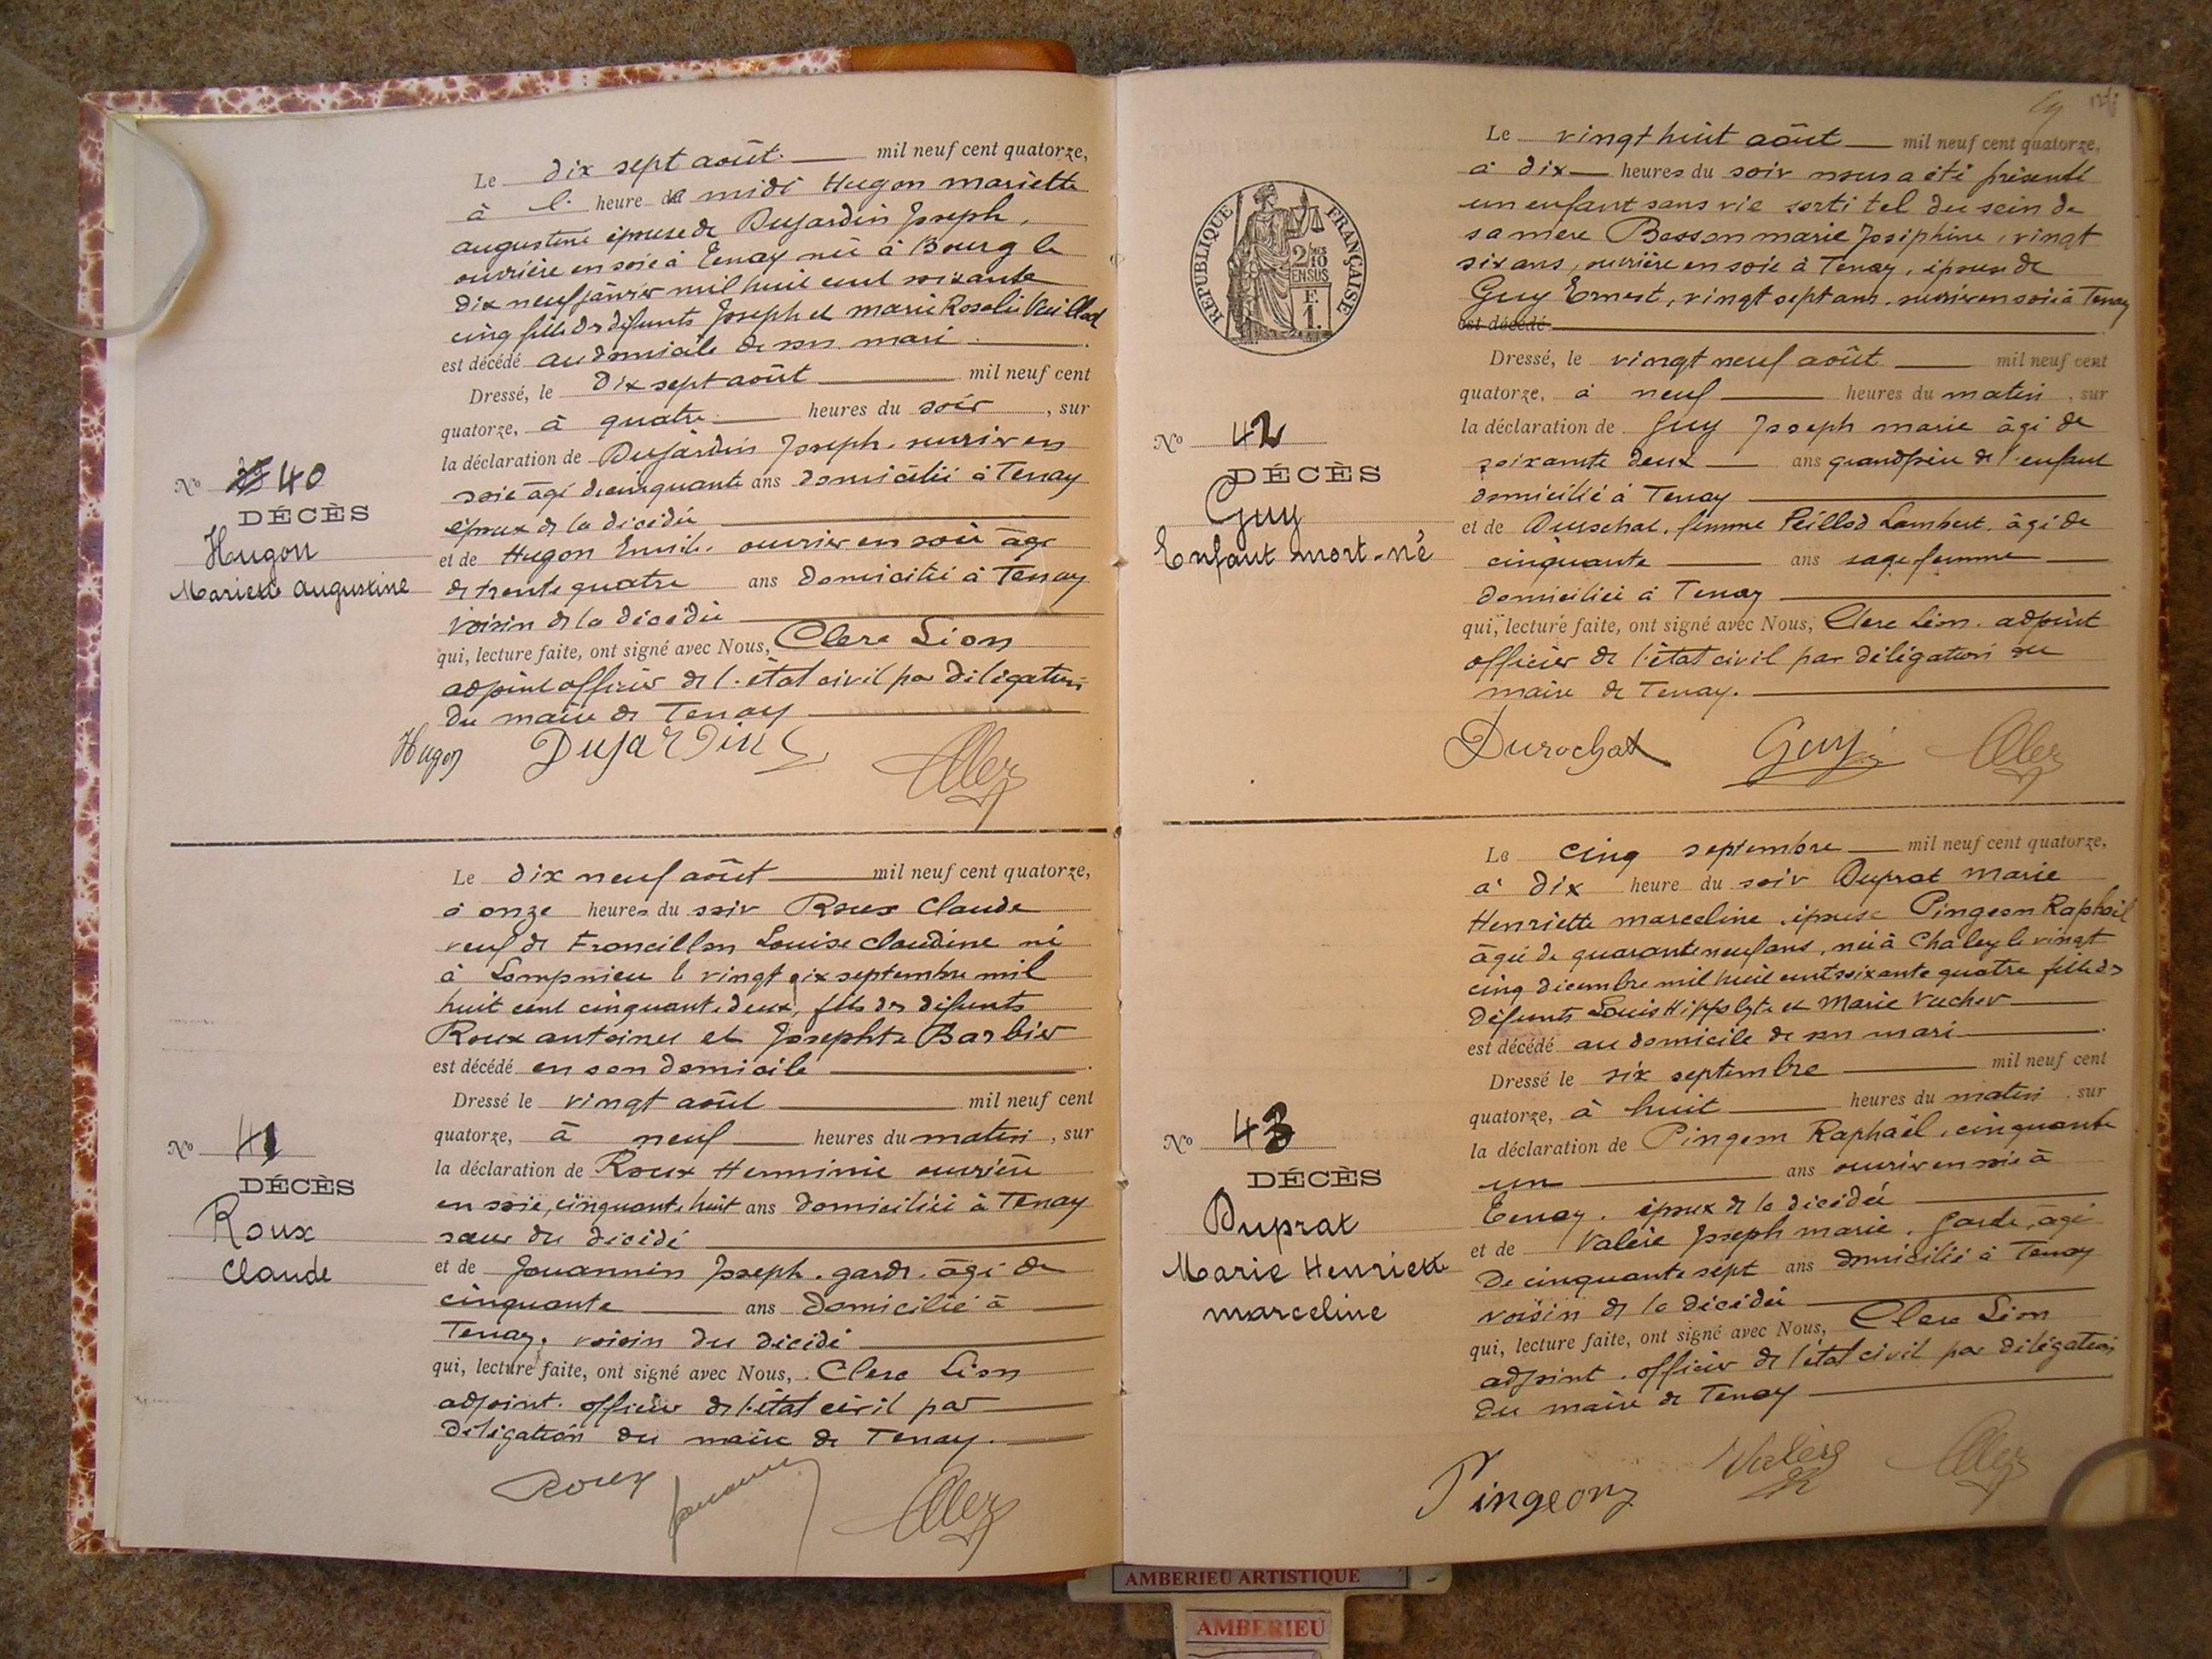 Le dix sept août. mil neuf cent quatorze,
à l' heure de midi Hugon mariette
augustine épouse de Dujardin Joseph,
ouvrière en soie à Tenay née à Bourg le
dix neuf janvier mil huit cent soixante
cinq fille de défunts Joseph et marie Rosalie
est décédé au domicile de son mari.
Dressé, le dix sept août mil neuf cent
quatorze, à quatre heures du soir, sur
la déclaration de Dujardin Joseph. ouvrier en
soie âgé de cinquante ans domicilié à Tenay
époux de la décédée
et de Hugon Emile. ouvrier en soie âgé
de trente quatre ans domicilié à Tenay
voisin de la décédée
qui, lecture faite, ont signé avec Nous, Clerc Léon
adjoint officier de l'état civil par délégation
du maire de Tenay
Hugon Dujardin Clerc
No 40
DÉCÈS
Hugon
Mariette Augustine
Le dix neuf août mil neuf cent quatorze,
à onze heures du soir Roux Claude
veuf de Francillon Louise Claudine né
à Lompnieu le vingt six septembre mil
huit cent cinquante deux, fils de défunts
Roux antoine et Josephte Barbier
est décédé en son domicile
Dressé le vingt août mil neuf cent
quatorze, à neuf heures du matin, sur
la déclaration de Roux Herminie ouvrière
en soie, cinquante huit ans domiciliée à Tenay
sœur du décédé
et de Jouannin Joseph. garde. âgé de
cinquante ans domicilié à
Tenay, voisin du décédé
qui, lecture faite, ont signé avec Nous, Clerc Léon
adjoint. officier de l'état civil par
délégation du maire de Tenay.
Roux Jouannin Clerc
No 41
DÉCÈS
Roux
Claude
Le vingt huit août mil neuf cent quatorze,
à dix heures du soir nous a été présenté
un enfant sans vie sorti tel du sein de
sa mère Besson marie Joséphine, vingt
six ans, ouvrière en soie à Tenay, épouse de
Guy Ernest, vingt sept ans. ouvrier en soie à Tenay
est décédé
Dressé, le vingt neuf août mil neuf cent
quatorze, à neuf heures du matin, sur
la déclaration de Guy Joseph marie âgé de
soixante deux ans grand père de l'enfant
domicilié à Tenay
et de Durochat, femme Peillod Lambert. âgée de
cinquante ans sage femme
domiciliée à Tenay
qui, lecture faite, ont signé avec Nous, Clerc Léon. adjoint
officier de l'état civil par délégation du
maire de Tenay.
Durochat Guy Clerc
REPUBLIQUE FRANÇAISE
2/10
EN SUS
F.
1.
No 42
DÉCÈS
Guy
Enfant mort-né
Le cinq septembre mil neuf cent quatorze,
à dix heure du soir Duprat marie
Henriette marceline, épouse Pingeon Raphaël
âgée de quarante neuf ans, née à Chaley le vingt
cinq décembre mil huit cent soixante quatre fille de
défunts Louis Hippolyte et Marie Vucher
est décédé au domicile de son mari
Dressé le six septembre mil neuf cent
quatorze, à huit heures du matin, sur
la déclaration de Pingeon Raphaël, cinquante
un ans ouvrier en soie à
Tenay. époux de la décédée
et de Valère Joseph marie. garde, âgé
de cinquante sept ans domicilié à Tenay
voisin de la décédée
qui, lecture faite, ont signé avec Nous, Clerc Léon
adjoint. officier de l'état civil par délégation
du maire de Tenay
Pingeon Valère Clerc
No 43
DÉCÈS
Duprat
Marie Henriette
marceline
AMBERIEU ARTISTIQUE
AMBERIEU